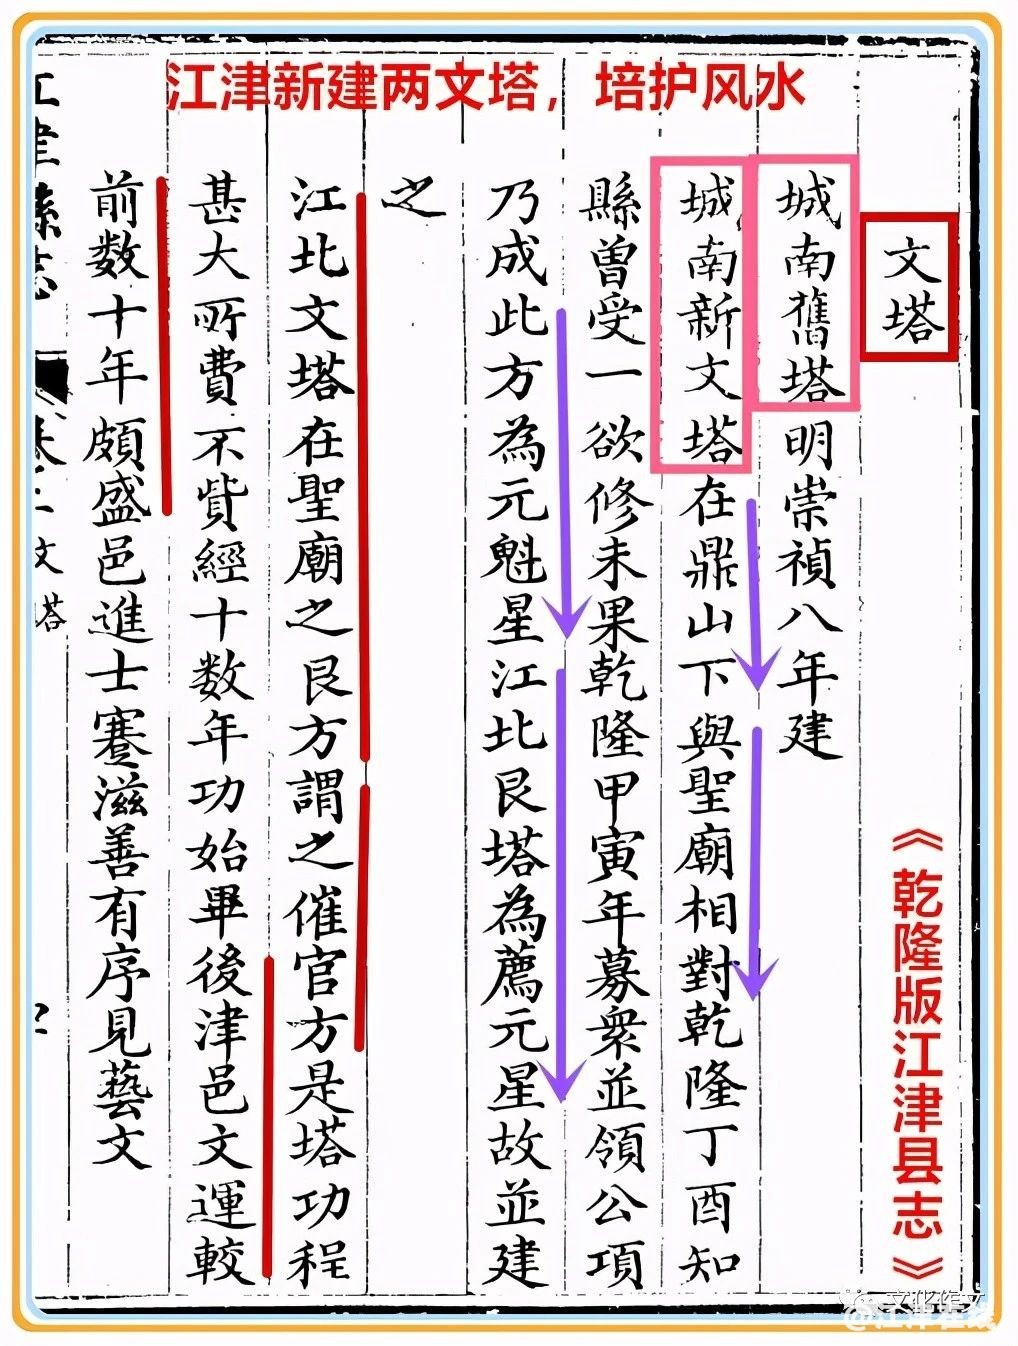 江津新建两文塔，培护风水
文塔
城南舊塔明崇禎八年建
城南新文塔在鼎山下與聖廟相對乾隆丁酉知
縣曾受一欲修未果乾隆甲寅年募衆並領公項
乃成此方為元魁星江北艮塔為薦元星故並建
之
江北文塔在聖廟之艮方謂之催官方是塔功程
甚大所費不貲經十数年功始畢後津邑文運較
前数十年頗盛邑進士蹇滋善有序見藝文
江津縣志
文塔
《乾隆版江津县志》
@江津在线